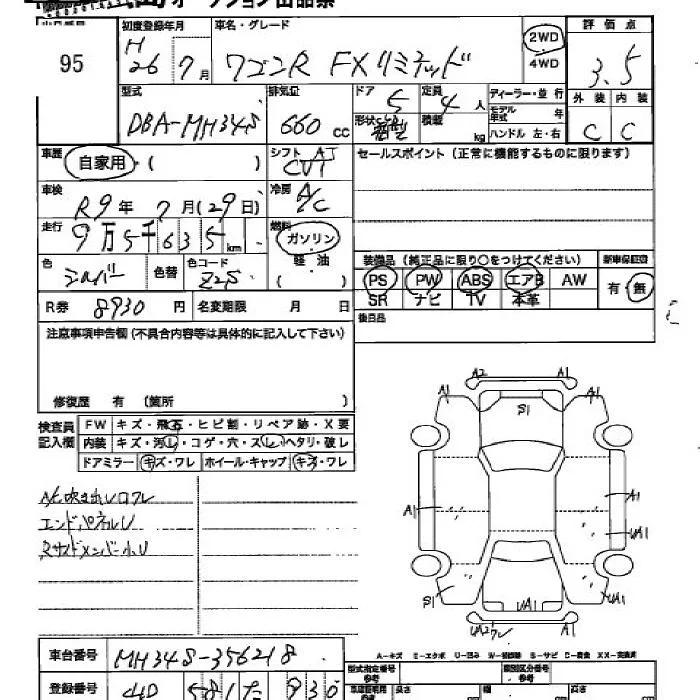 オークション出品票
95
初度登録年月
H 26 7月
車名・グレード
ワゴンR FXリミテッド
2WD
4WD
評価点
3.5
型式
DBA-MH34S
排気量
660 cc
ドア
5
定員
4人
形状
積載
kg
ディーラー・並行
モデル年式
年
ハンドル 左・右
外装 内装
C C
車歴
自家用・( )
シフト AT
CVT
セールスポイント (正常に機能するものに限ります)
車検
R9年7月(29日)
冷房
A/C
走行
9万5千635km
燃料
ガソリン
軽油
( )
装備品 (純正品に限り○をつけてください)
新車保証書
色
シルバー
色替
色コード
Z2S
PS PW ABS エアB AW
SR ナビ TV 本革
有・無
R券
8930円
名変期限 月 日
後日品
注意事項申告欄(不具合内容等は具体的に記入して下さい)
修復歴 有 (箇所 )
検査員記入欄
FW キズ・飛石・ヒビ割・リペア跡・X要
内装 キズ・汚れ・コゲ・穴・スレ・ヘタリ・破レ
ドアミラー キズ・ワレ ホイール・キャップ キズ・ワレ
A/C吹き出し口ワレ
エンドパネルU
ミサイドメンバー小U
A2
A1
A1
A1
S1
A1
A1
UA1
S1
UA1
UA1
UA2ワレ
A1
A-キズ E-エクボ U-凹み W-補修跡 S-サビ C-腐食 XX-交換済
車台番号
MH34S-356218
登録番号
581 た 930
型式指定番号
類別区分番号
参考
参考
長さ
幅
高さ